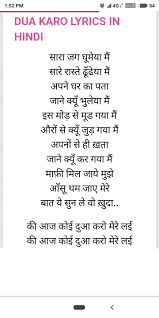 1:52 PM
4G
84
DUA KARO LYRICS IN
HINDI
सारा जग घूमेया मैं
सारे रास्ते ढूँढेया मैं
अपने घर का पता
जाने क्यूँ भुलेया मैं
इस मोड़ से मूड गया मैं
औरों से क्यूँ जुड़ गया मैं
अपनों से ही ख़ता
जाने क्यूँ कर गया मैं
माफ़ी मिल जाये मुझे
आँसू थम जाए मेरे
बात ये सुन ले वो ख़ुदा..
की आज कोई दुआ करो मेरे लई
की आज कोई दुआ करो मेरे लई